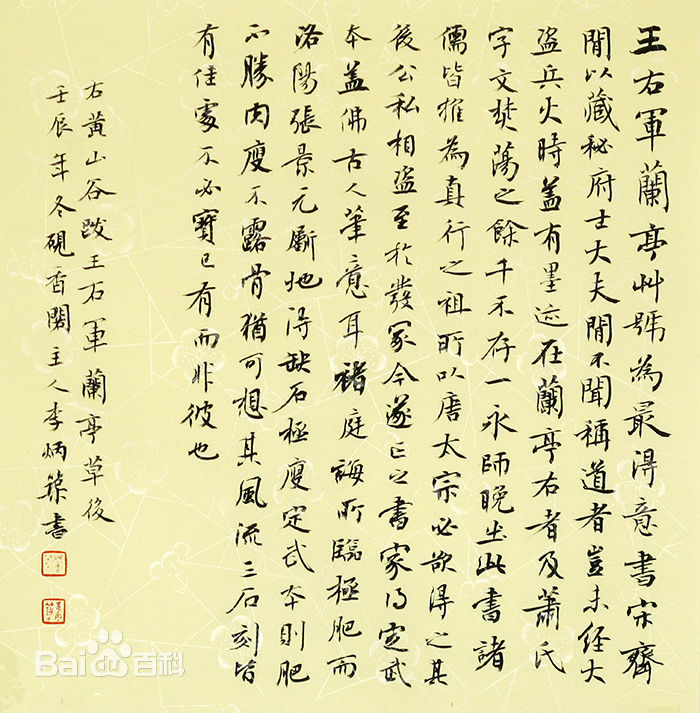 王右軍蘭亭艸號為最得意書宋齊
間以藏秘府士大夫間不聞稱道者豈未經大
盜兵火時蓋有墨迹在蘭亭右者及蕭氏
宇文焚蕩之餘千不存一永師晚出此書諸
儒皆推為真行之祖所以唐太宗必欲得之其
後公私相盜至於發冢今遂亡之書家得定武
本蓋佛古人筆意耳褚庭誨所臨極肥而
洛陽張景元斸地得缺石極瘦定武本則肥
不勝肉瘦不露骨猶可想其風流三石刻皆
有佳處不必寶己有而非彼也
右黃山谷跋王右軍蘭亭草後
壬辰年冬硯香閣主人李炳書
Baidu百科